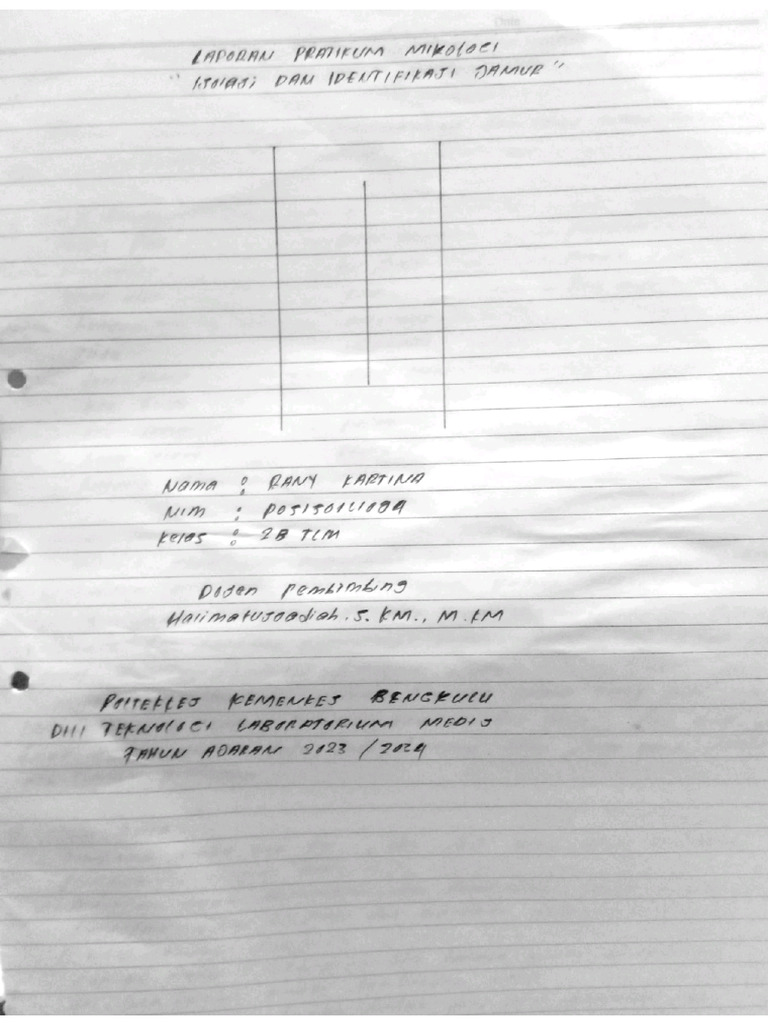 LAPORAN PRATIKUM MIKOLOGI
"ISOLASI DAN IDENTIFIKASI JAMUR"
Nama : RANY KARTINA
NIM :
Kelas : 2B TLM
Dosen Pembimbing
Halimatussadiah. S. KM., M. KM
POLTEKKES KEMENKES BENGKULU
DIII TEKNOLOGI LABORATORIUM MEDIS
TAHUN AJARAN 2023 / 2024